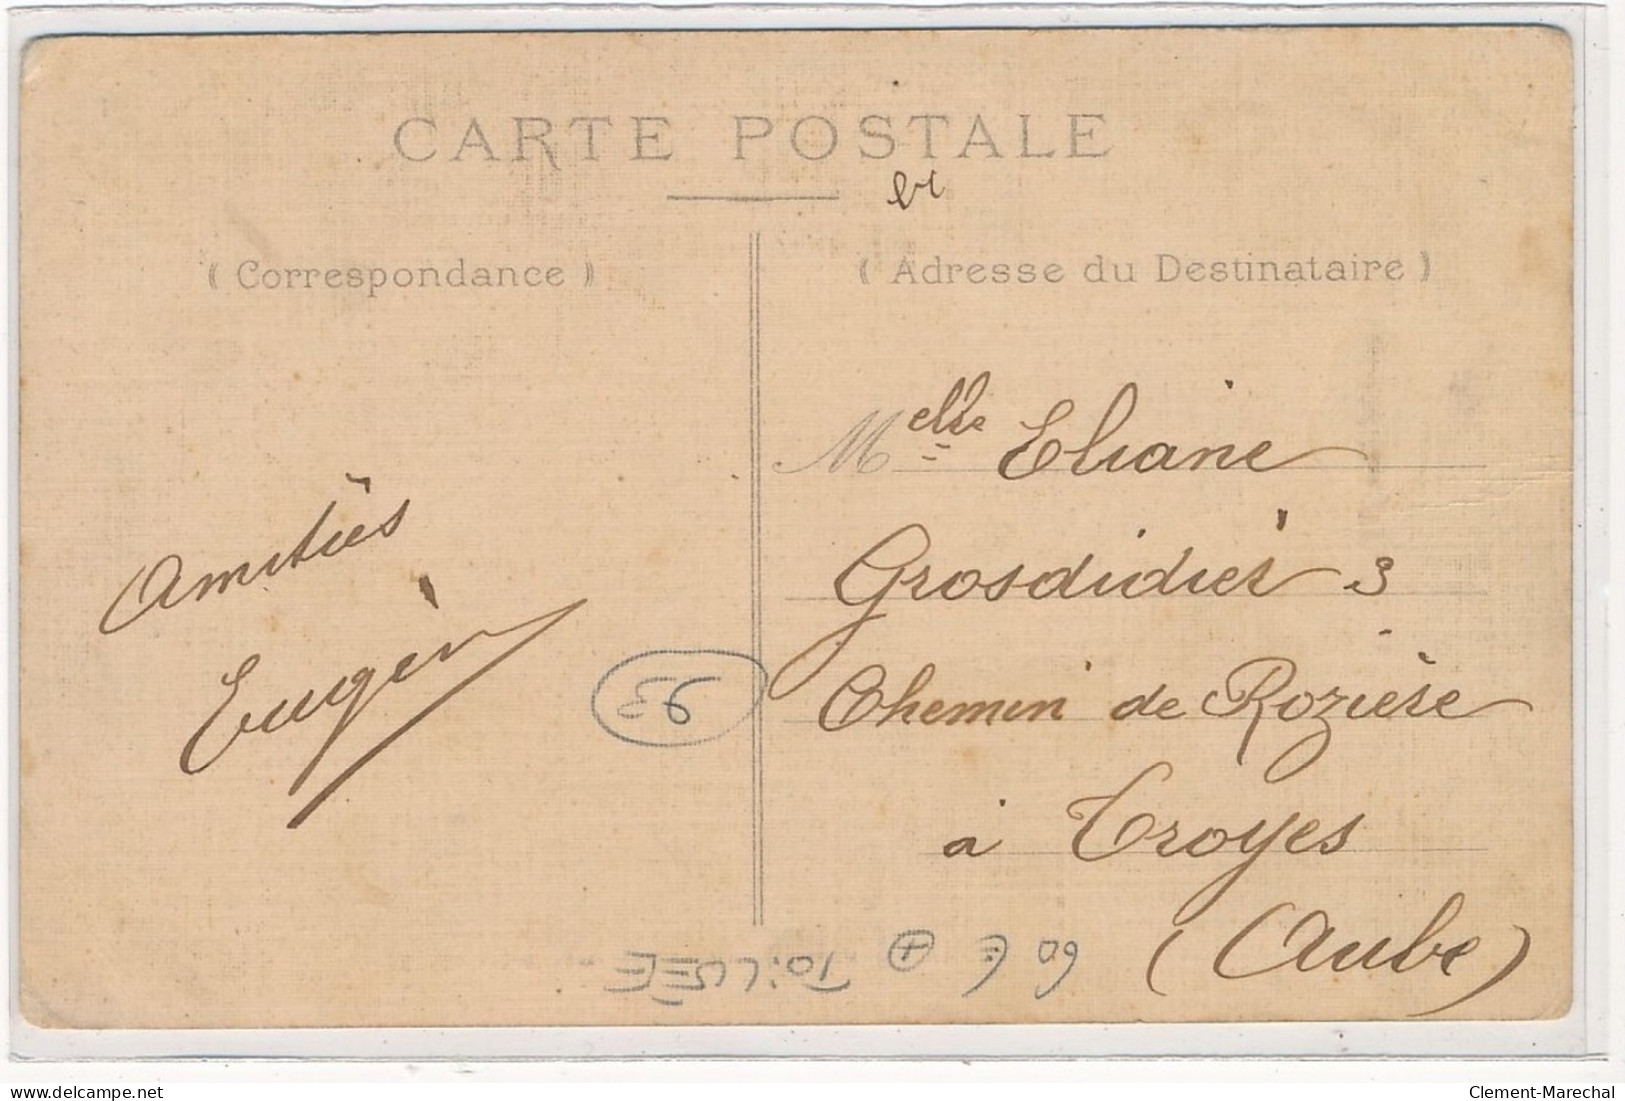 CARTE POSTALE
( Correspondance )
( Adresse du Destinataire )
Amitiés
Eugèn
Melle Eliane
Grosdidier 3
Chemin de Rozière
à Troyes
(Aube)
93
60 € + TOILÉE
delcampe.net
Clement-Marechal